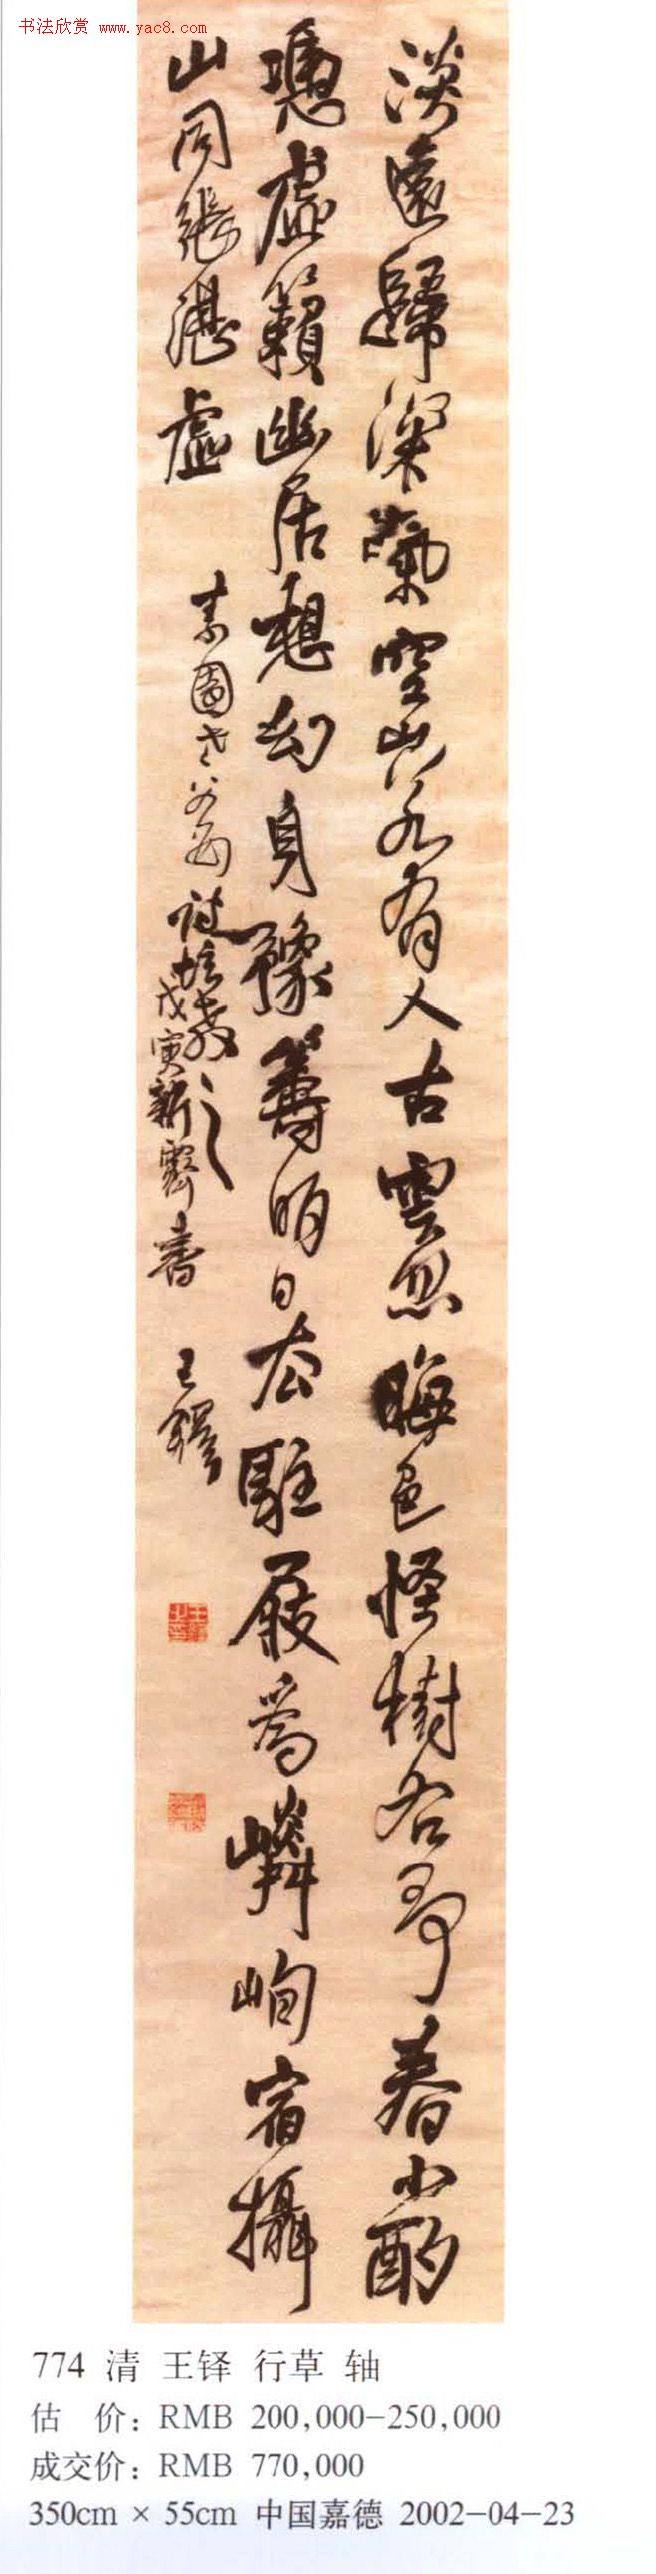 书法欣赏 www.yac8.com
淡遠歸深氣空山若有人古雲忽晦色怪樹各爭春小酌
憑虛籟幽居想幻身豫籌明日去駐屐為嶙峋宿攝
山同張湛虛
素園老父母詞壇教之
戊寅新霽書
王鐸
774 清 王铎 行草 轴
估 价: RMB 200,000-250,000
成交价: RMB 770,000
350cm × 55cm 中国嘉德 2002-04-23